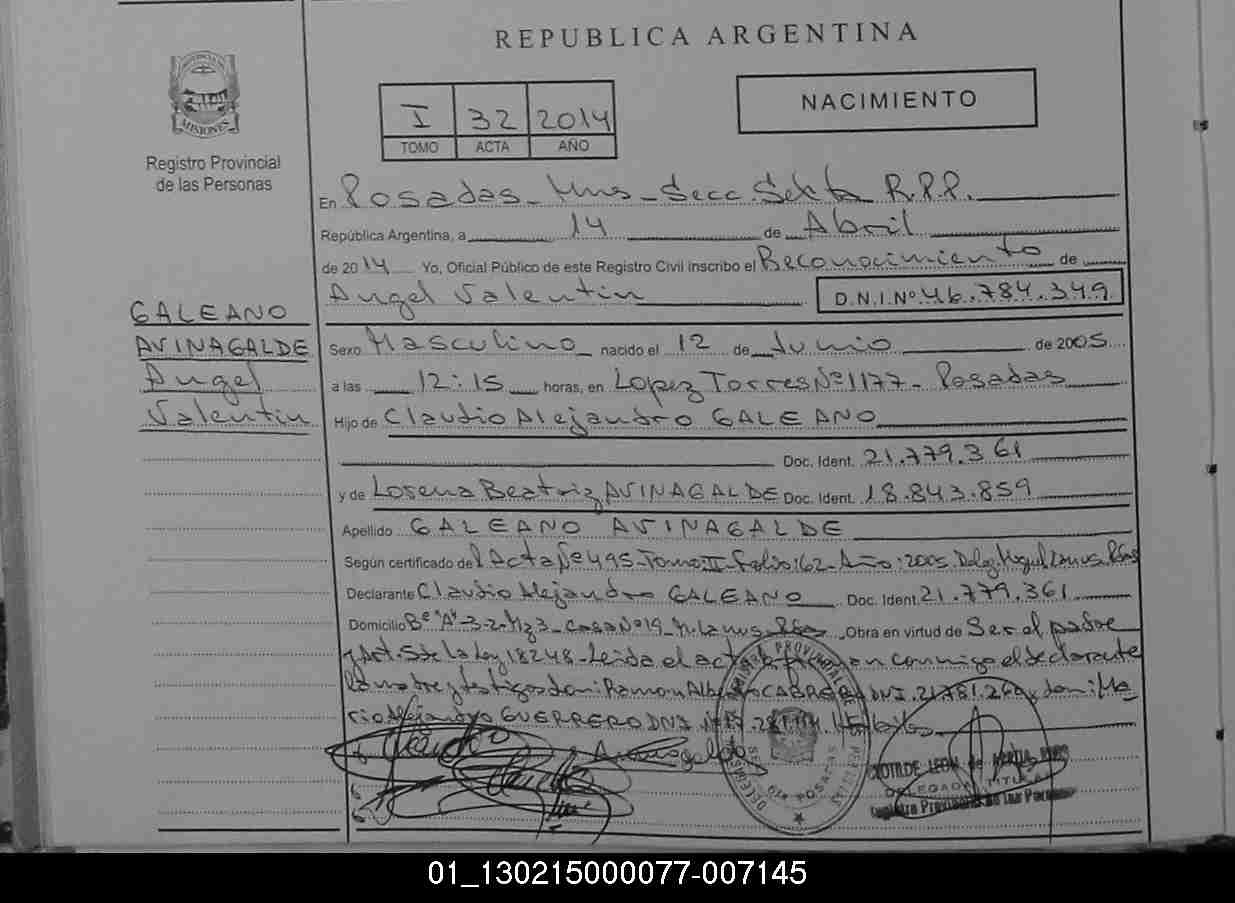 REPUBLICA ARGENTINA
MISIONES
Registro Provincial
de las Personas
I 32 2014
TOMO ACTA AÑO
NACIMIENTO
En Posadas - Mns - Secc. Sexta R.P.P.
República Argentina, a 14 de Abril
de 2014 Yo, Oficial Público de este Registro Civil inscribo el Reconocimiento de
Angel Valentin D.N.I. Nº 46.784.349
GALEANO
AVINAGALDE
Angel
Valentin
Sexo Masculino nacido el 12 de Junio de 2005
a las 12:15 horas, en Lopez Torres Nº 1177 - Posadas
Hijo de Claudio Alejandro GALEANO
Doc. Ident. 21.779.361
y de Lorena Beatriz AVINAGALDE Doc. Ident. 18.843.859
Apellido GALEANO AVINAGALDE
Según certificado del Acta Nº 495 - Tomo: II - Folio: 62 - Año: 2005. Deleg. Miguel Lanus. Pdas
Declarante Claudio Alejandro GALEANO Doc. Ident. 21.779.361
Domicilio Bº "A" 3-2 - Mz 3 - Casa Nº 19 - M. Lanus - Pdas Obra en virtud de Ser el padre
y Art. 5 de la Ley 18248 - Leida el acta la firman conmigo el declarante
la madre y testigos don: Ramon Alberto CABRERA DNI. 21.781.269 y don: Ma
rio Alejandro GUERRERO DNI Nº
CLOTILDE LEON de
DELEGADA TITULAR
Registro Provincial de las Personas
01_130215000077-007145